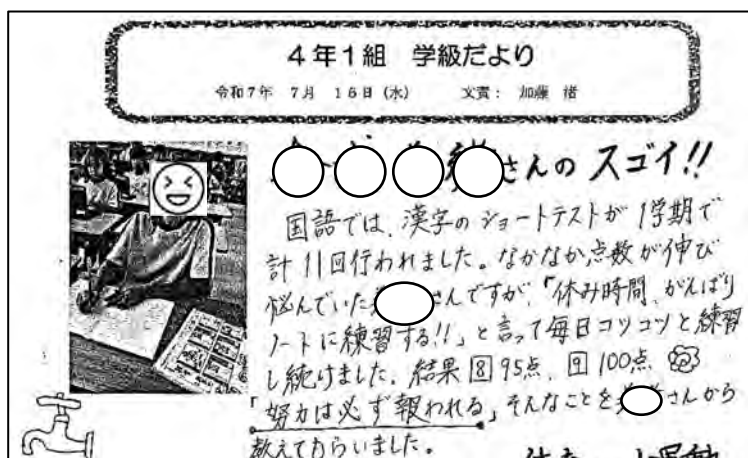 4年1組 学級だより
令和7年 7月 16日(水) 文責: 加藤 渚
さんの スゴイ!!
国語では、漢字のショートテストが 1学期で
計 11回行われました。なかなか点数が伸び
悩んでいた さんですが、「休み時間、がんばり
ノートに練習する!!」と言って毎日コツコツと練習
し続けました。結果 8 95点、9 100点
「努力は必ず報われる」そんなことを さんから
教えてもらいました。